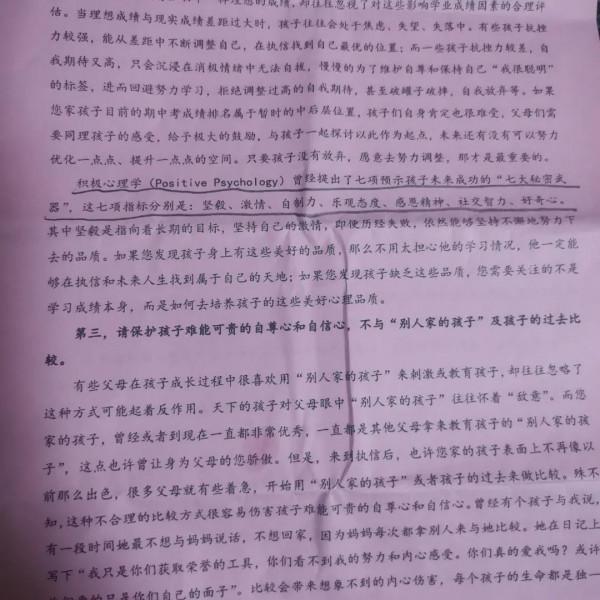 理想的成绩，却往往忽视了对这些影响学业成绩因素的合理评
估。当理想成绩与现实成绩差距过大时，孩子往往会处于焦虑、失望、失落中。有些孩子抗挫
力较强，能从差距中不断调整自己，在执信找到自己最优的位置；而一些孩子抗挫力较差，自
我期待又高，只会沉浸在消极情绪中无法自拔，慢慢的为了维护自尊和保持自己“我很聪明”
的标签，进而回避努力学习，拒绝调整过高的自我期待，甚至破罐子破摔，自我放弃等。如果
您家孩子目前的期中考成绩排名属于暂时的中后层位置，孩子们自身肯定也很难受，父母们需
要同理孩子的感受，给予极大的鼓励，与孩子一起探讨以此作为起点，未来还有没有可以努力
优化一点点、提升一点点的空间。只要孩子没有放弃，愿意去努力调整，那才是最重要的。
积极心理学（Positive Psychology）曾经提出了七项预示孩子未来成功的“七大秘密武
器”，这七项指标分别是：坚毅、激情、自制力、乐观态度、感恩精神、社交智力、好奇心。
其中坚毅是指向着长期的目标，坚持自己的激情，即便历经失败，依然能够坚持不懈地努力下
去的品质。如果您发现孩子身上有这些美好的品质，那么不用太担心他的学习情况，他一定能
够在执信和未来人生找到属于自己的天地；如果您发现孩子缺乏这些品质，您需要关注的不是
学习成绩本身，而是如何去培养孩子的这些美好心理品质。
第三，请保护孩子难能可贵的自尊心和自信心，不与“别人家的孩子”及孩子的过去比
较。
有些父母在孩子成长过程中很喜欢用“别人家的孩子”来刺激或教育孩子，却往往忽略了
这种方式可能起着反作用。天下的孩子对父母眼中“别人家的孩子”往往怀着“敌意”。而您
家的孩子，曾经或者到现在一直都非常优秀，一直都是其他父母拿来教育孩子的“别人家的孩
子”，这点也许曾让身为父母的您骄傲。但是，来到执信后，也许您家的孩子表面上不再像以
前那么出色，很多父母就有些着急，开始用“别人家的孩子”或者孩子的过去来做比较。殊不
知，这种不合理的比较方式很容易伤害孩子难能可贵的自尊心和自信心。曾经有个孩子与我说，
有一段时间她最不想与妈妈说话，不想回家，因为妈妈每次都拿别人来与她比较。她在日记上
写下“我只是你们获取荣誉的工具，你们看不到我的努力和内心感受。你们真的爱我吗？或许
的只是你们自己的面子”。比较会带来想象不到的内心伤害，每个孩子的生命都是独一